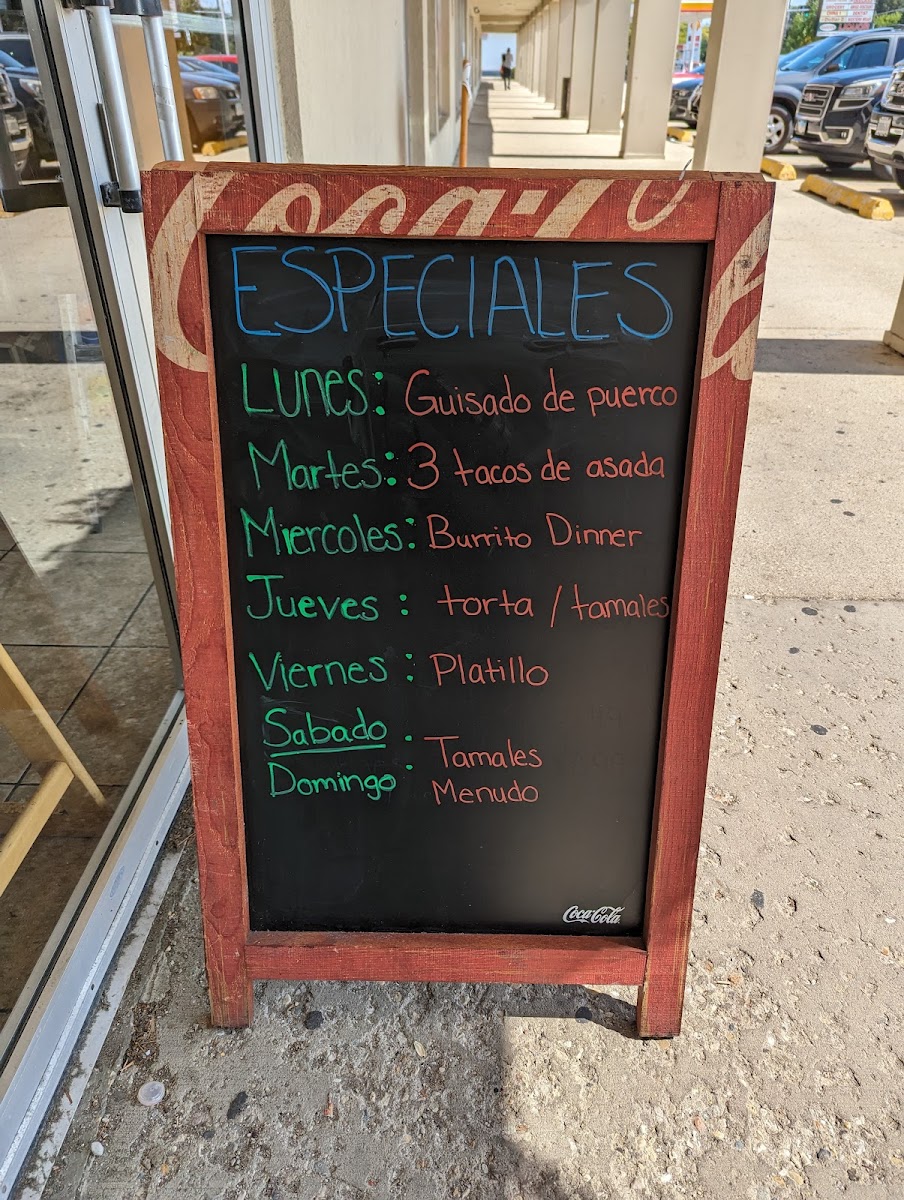 Coca-Cola
ESPECIALES
LUNES: Guisado de puerco
Martes: 3 tacos de asada
Miercoles: Burrito Dinner
Jueves : torta / tamales
Viernes : Platillo
Sabado : Tamales
Domingo Menudo
Coca-Cola